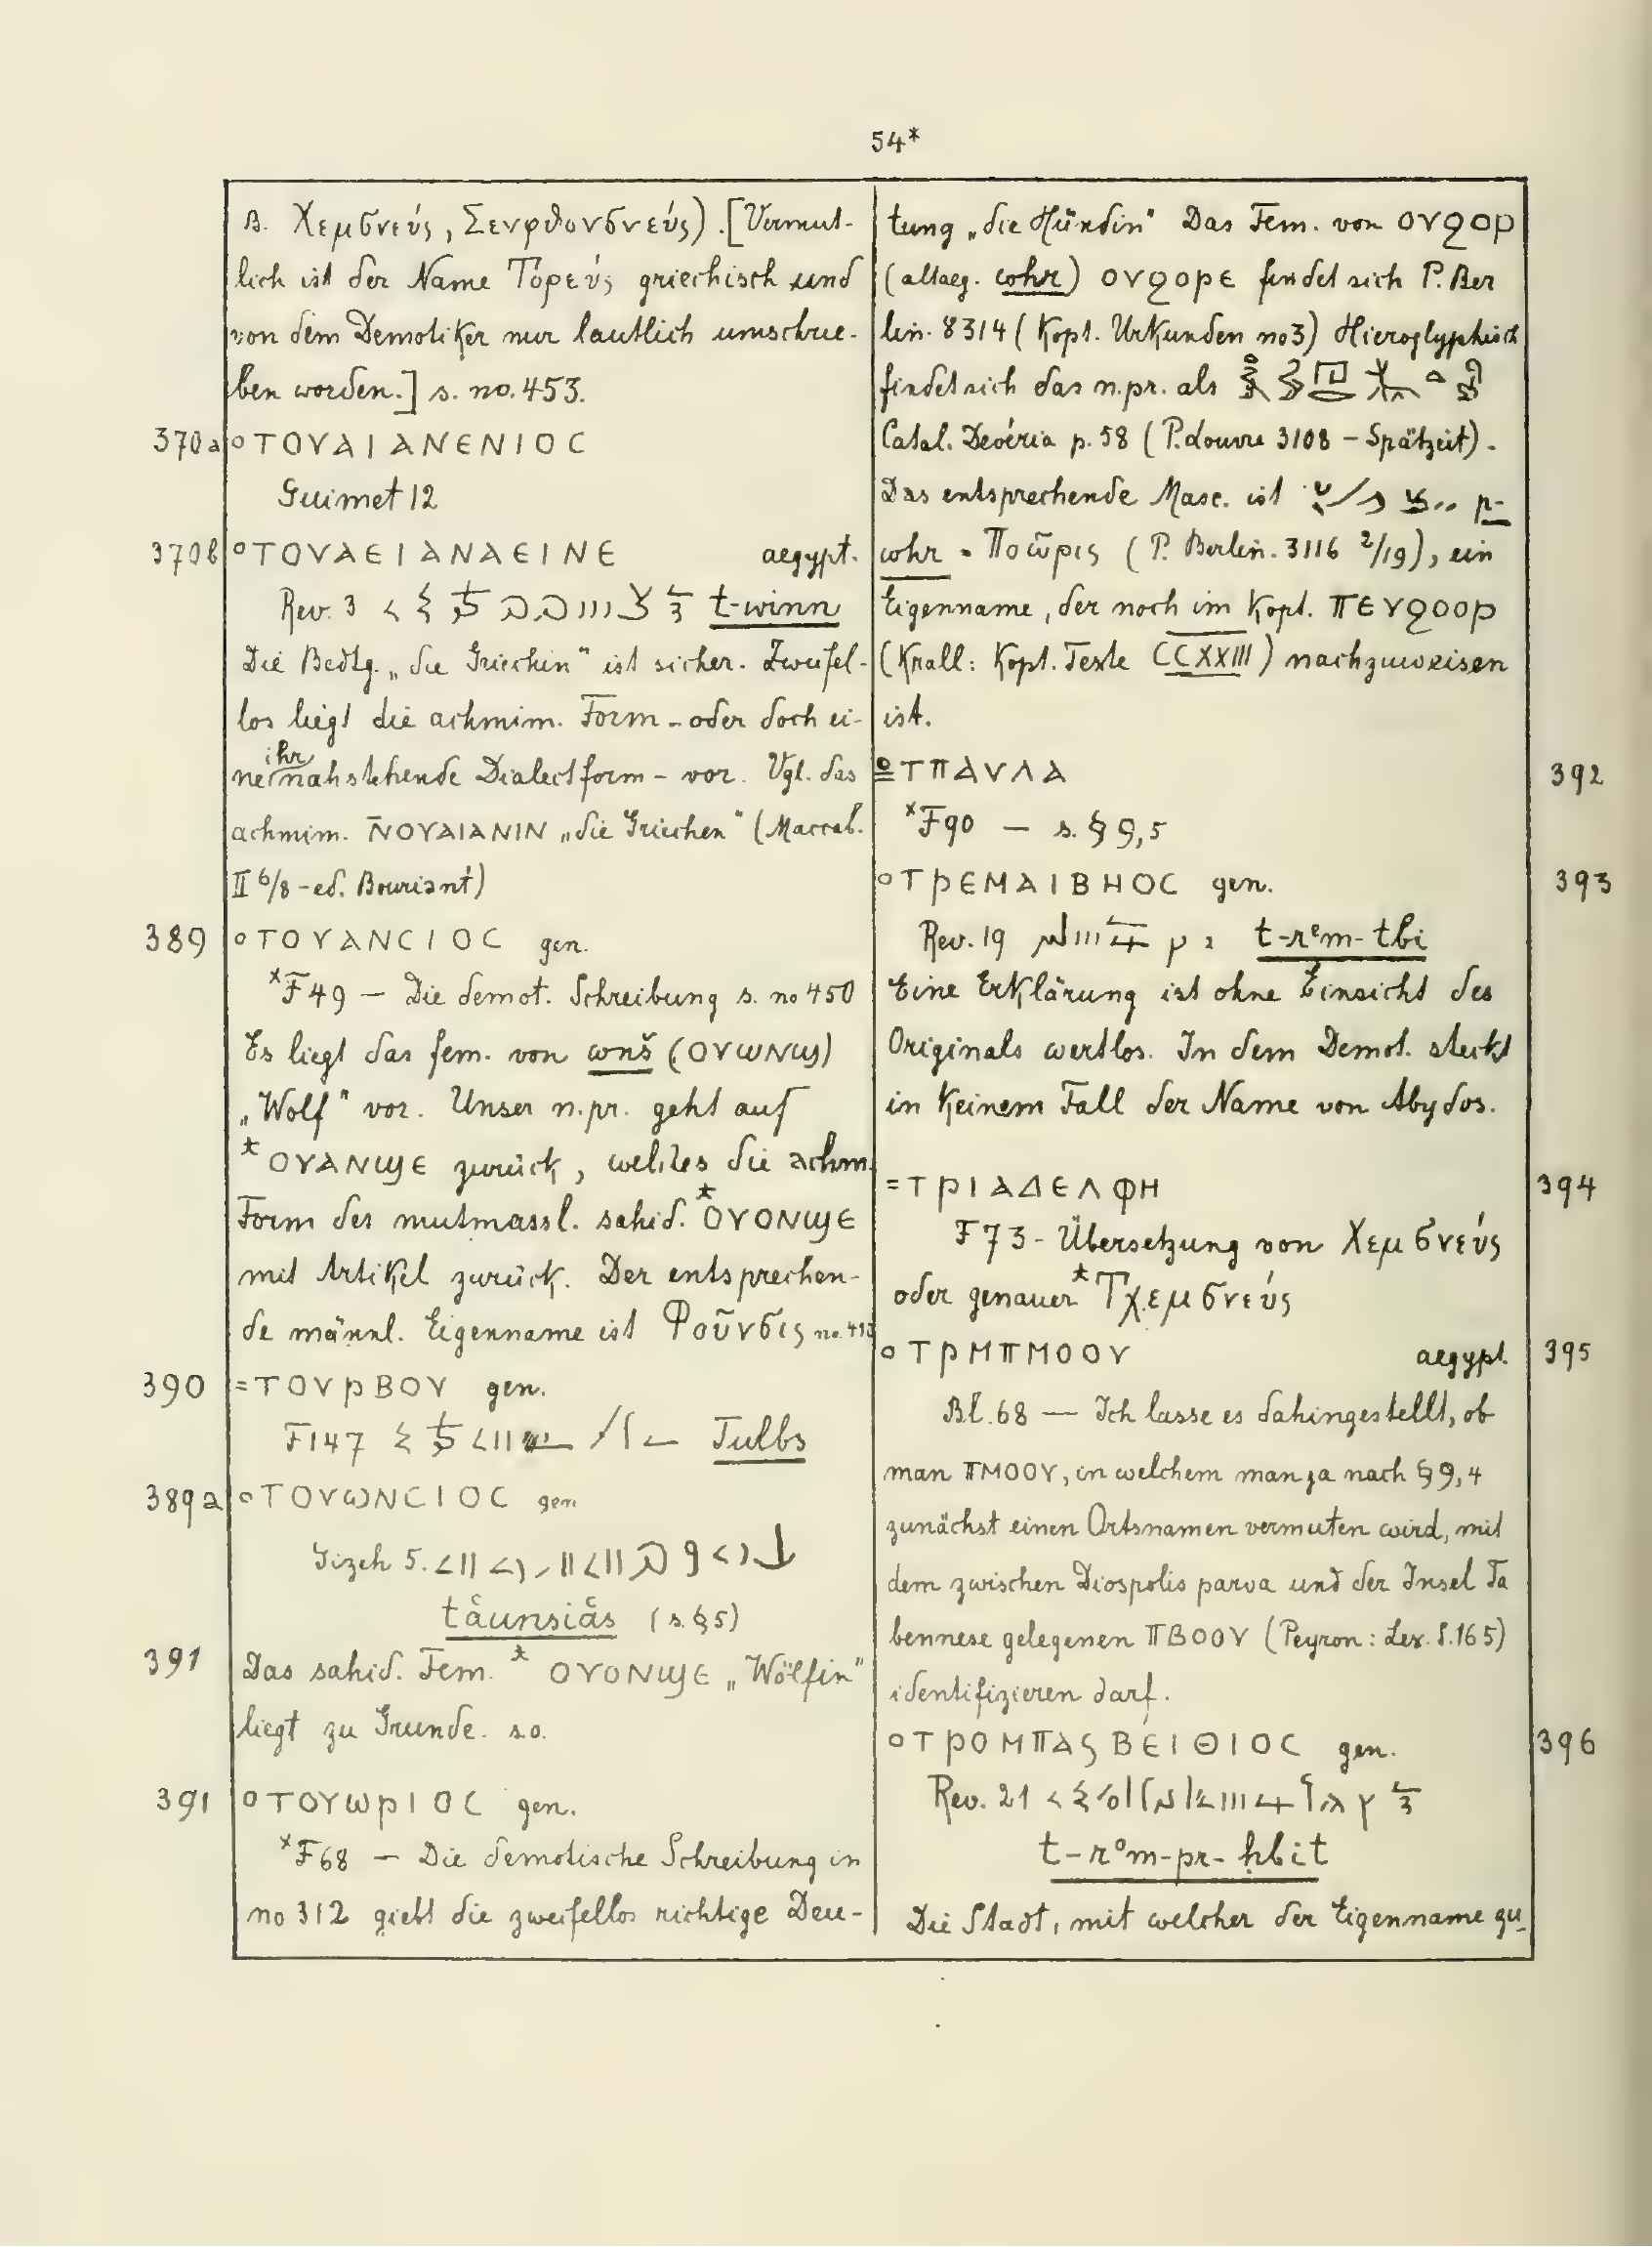 54*
B. Χεμσνεύς, Σενφθονσνεύς). [Vermut-
lich ist der Name Τορεύς griechisch und
von dem Demotiker nur lautlich umschrie-
ben worden.] s. no. 453.
370a °ΤΟΥΑΙΑΝΕΝΙΟC
Guimet 12
370b °ΤΟΥΑΕΙΑΝΑΕΙΝΕ aegypt.
Rev. 3 t-winn
Die Bedtg. „die Griechin" ist sicher. Zweifel-
los liegt die achmim. Form - oder doch ei-
ne ihr nahstehende Dialectform - vor. Vgl. das
achmim. N̄ΟΥΑΙΑΝΙΝ „die Griechen" (Maccab.
II 6/8 - ed. Bouriant)
389 °ΤΟΥΑΝCΙΟC gen.
*F49 — Die demot. Schreibung s. no 450
Es liegt das fem. von wnš (ⲞⲨⲰⲚϢ)
„Wolf" vor. Unser n.pr. geht auf
*ⲞⲨⲀⲚϢⲈ zurück, welches die achm.
Form des mutmassl. sahid. *ⲞⲨⲞⲚϢⲈ
mit Artikel zurück. Der entsprechen-
de männl. Eigenname ist Φοῦνσις no.
390 =ΤΟΥΡΒΟΥ gen.
F147 Tulbs
389a °ΤΟΥωΝCΙΟC gen
Gizeh 5. tåunsiås (s. § 5)
391 Das sahid. Fem. *ⲞⲨⲞⲚϢⲈ „Wölfin"
liegt zu Grunde. s.o.
391 °ΤΟΥωΡΙΟC gen.
*F68 — Die demotische Schreibung in
no 312 giebt die zweifellos richtige Deu-
tung „die Hündin" Das Fem. von ⲞⲨϨⲞⲢ
(altaeg. whr) ⲞⲨϨⲞⲢⲈ findet sich P. Ber
lin. 8314 (Kopt. Urkunden no 3) Hieroglyphisch
findet sich das n.pr. als
Catal. Devéria p. 58 (P. Louvre 3108 – Spätzeit).
Das entsprechende Masc. ist p-
whr = Ποῶρις (P. Berlin. 3116 2/19), ein
Eigenname, der noch im Kopt. ⲠⲈⲨϨⲞⲞⲢ
(Krall: Kopt. Texte CCXXIII) nachzuweisen
ist.
ΤΠΑΥΛΑ 392
*F90 — s. § 9,5
°ΤΡΕΜΑΙΒΗΟC gen. 393
Rev. 19 t-rem-tbi
Eine Erklärung ist ohne Einsicht des
Originals wertlos. In dem Demot. steckt
in keinem Fall der Name von Abydos.
=ΤΡΙΑΔΕΛΦΗ 394
F73 - Übersetzung von Χεμσνεύς
oder genauer *Τχεμσνεύς
°ΤΡΜΠΜΟΟΥ aegypt. 395
Bl. 68 — Ich lasse es dahingestellt, ob
man ΠΜΟΟΥ, in welchem man ja nach § 9, 4
zunächst einen Ortsnamen vermuten wird, mit
dem zwischen Diospolis parva und der Insel Ta
bennese gelegenen ΠΒΟΟΥ (Peyron: Lex. S. 165)
identifizieren darf.
°ΤΡΟΜΠΑϚΒΕΙΘΙΟC gen. 396
Rev. 21
t-rom-pr-ḥbit
Die Stadt, mit welcher der Eigenname zu-